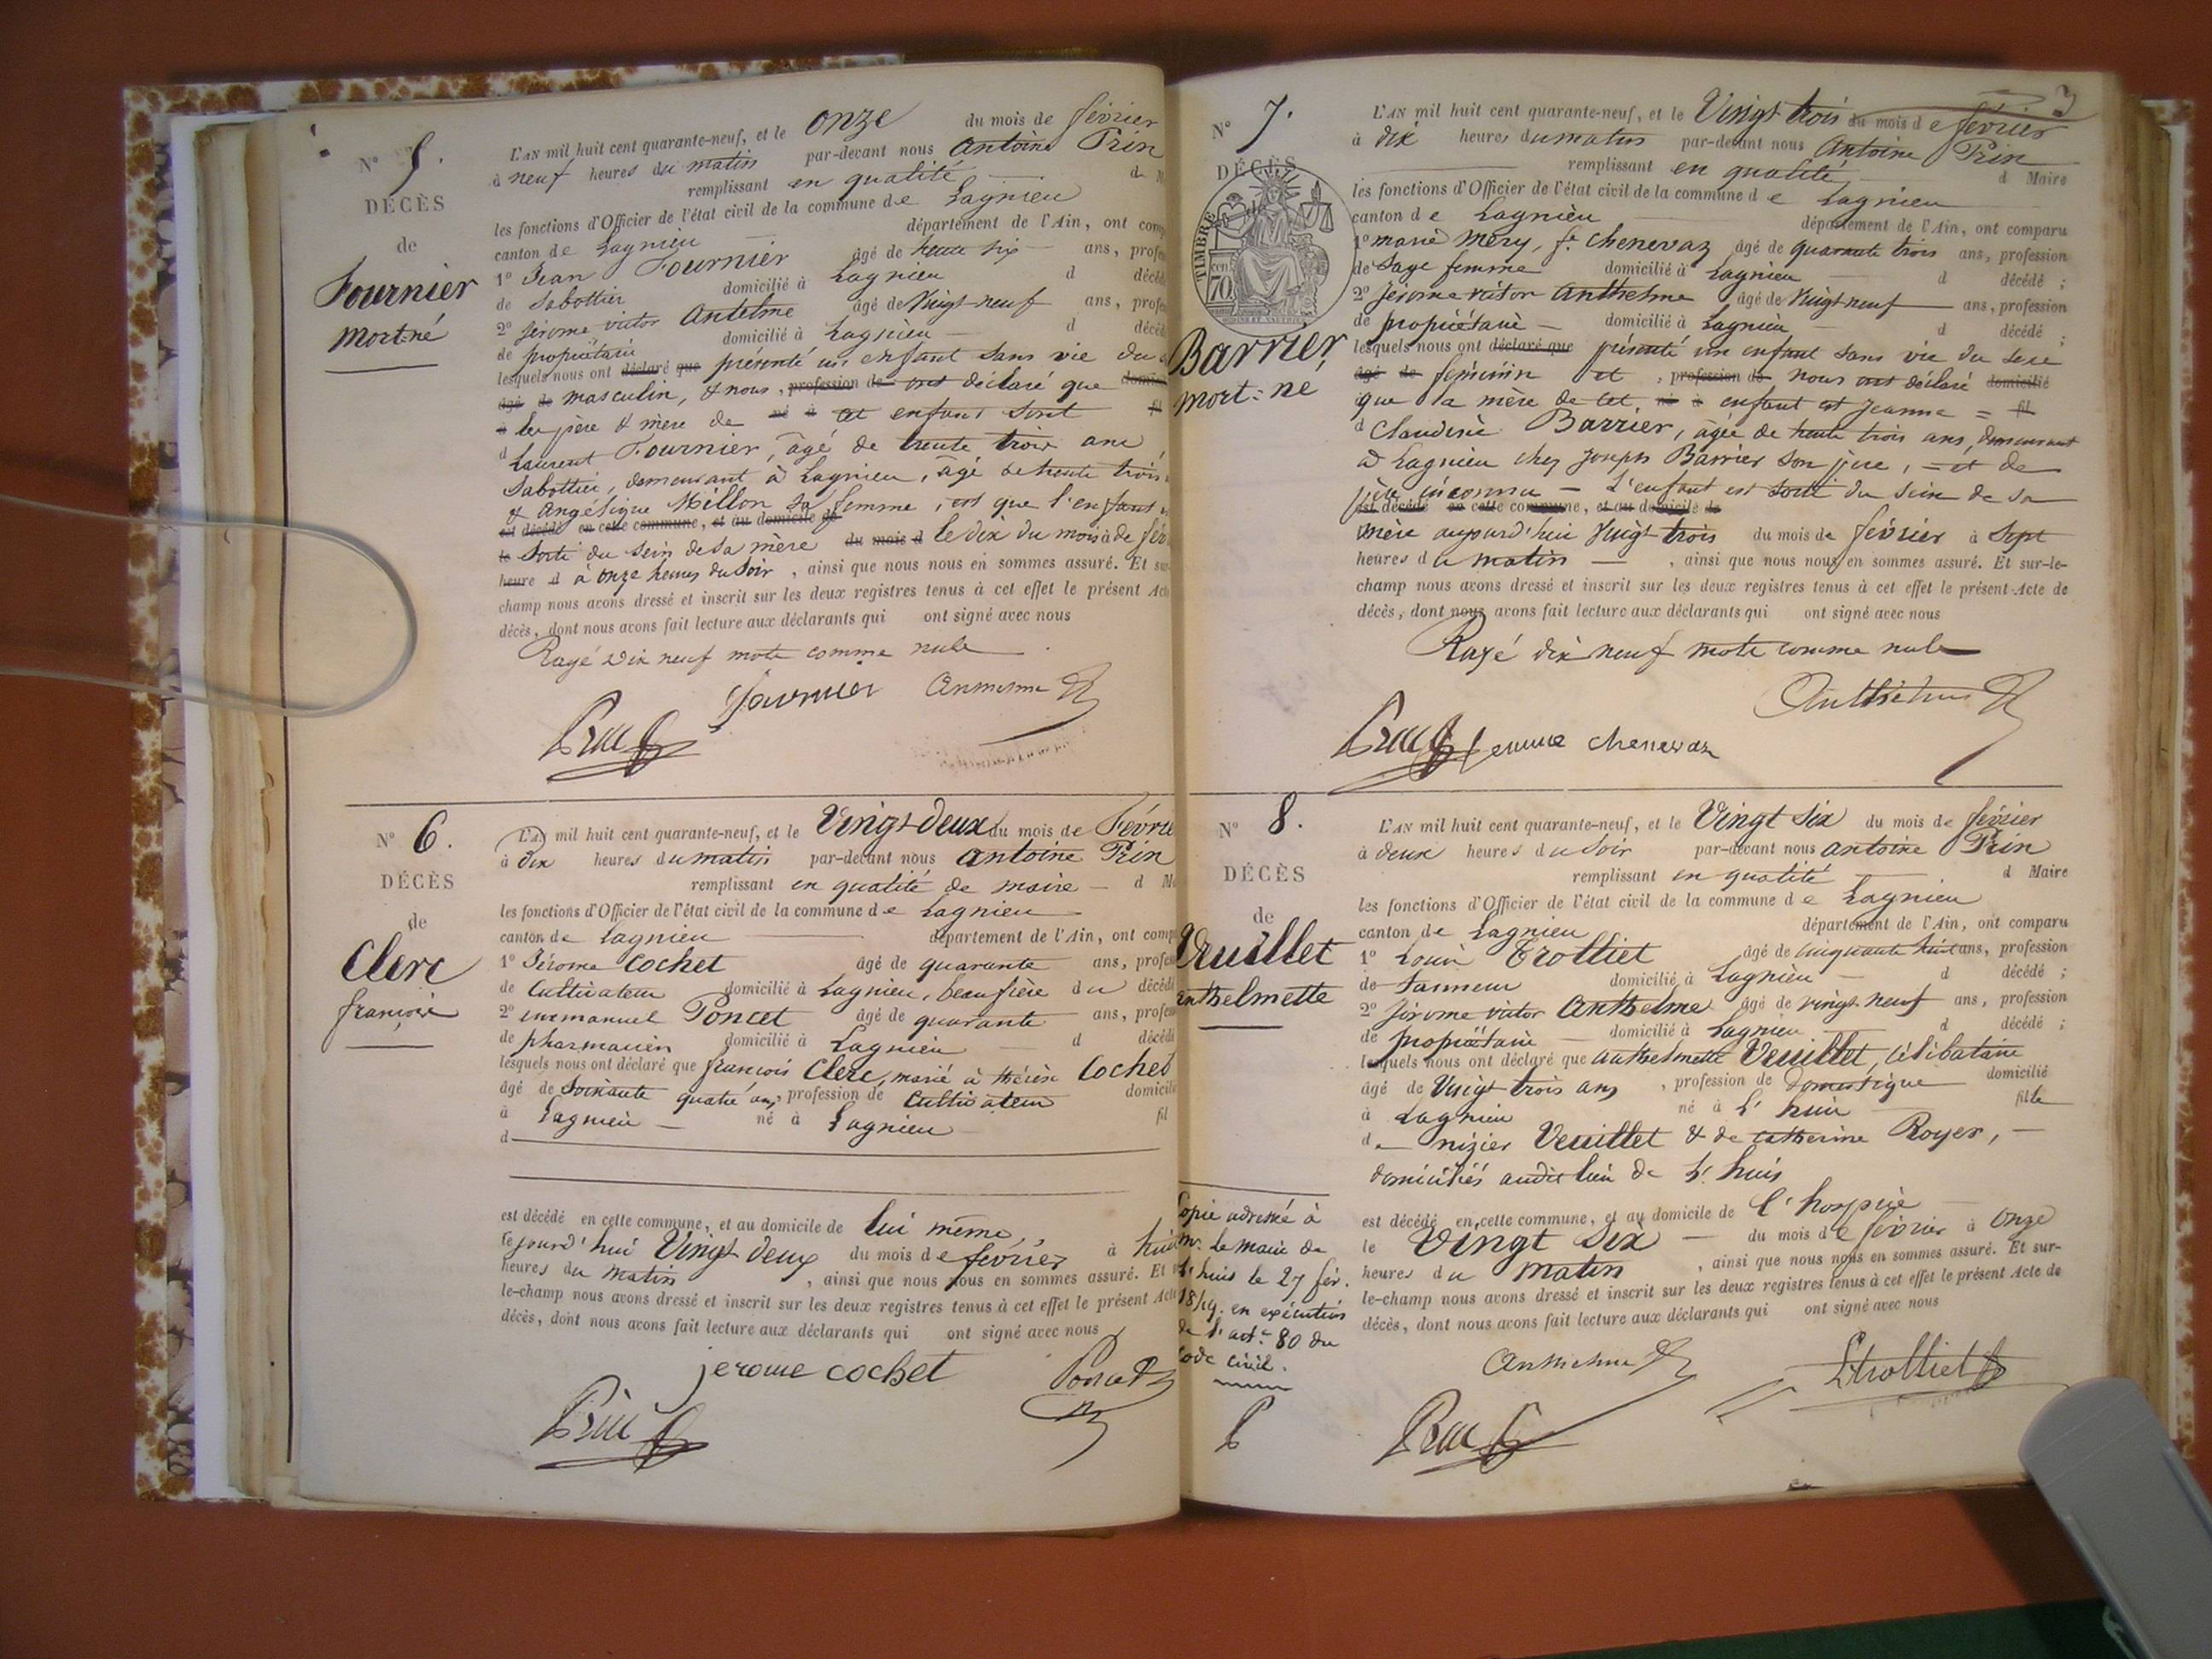 N° 5.
DÉCÈS
de
Fournier
mort-né
L'AN mil huit cent quarante-neuf, et le onze du mois de février
à neuf heures du matin par-devant nous Antoine Prin
remplissant en qualité d
les fonctions d'Officier de l'état civil de la commune de Lagnieu
canton de Lagnieu département de l'Ain, ont comp
1° Jean Fournier âgé de trente six ans, profes
de Sabottier domicilié à Lagnieu d décédé
2° Jérome victor Antelme âgé de Vingt-neuf ans, profes
de propriétaire domicilié à Lagnieu d décédé
lesquels nous ont déclaré que présenté un enfant sans vie du
âgé de masculin, & nous, profession de ont déclaré que domici
à les père & mère de né à cet enfant sont fil
d Laurent Fournier, âgé de trente trois ans,
Sabottier, demeurant à Lagnieu, âgé de trente trois
& Angélique Millon sa femme, et que l'enfant
est décédé en cette commune, et au domicile de
le Sorti du sein de sa mère du mois d le dix du mois à de fév
heure d à onze heures du Soir, ainsi que nous nous en sommes assuré. Et sur
champ nous avons dressé et inscrit sur les deux registres tenus à cet effet le présent Acte
décès, dont nous avons fait lecture aux déclarants qui ont signé avec nous
Rayé dix neuf mots comme nuls
Fournier Anthelme
Prin
N° 6.
DÉCÈS
de
Clerc
françois
L'AN mil huit cent quarante-neuf, et le Vingt-deux du mois de Févrie
à dix heures du matin par-devant nous Antoine Prin
remplissant en qualité de maire d Ma
les fonctions d'Officier de l'état civil de la commune de Lagnieu
canton de Lagnieu département de l'Ain, ont comp
1° Jérome Cochet âgé de quarante ans, profes
de Cultivateur domicilié à Lagnieu, beaufrère du décédé
2° emmanuel Poncet âgé de quarante ans, profes
de pharmacien domicilié à Lagnieu d décédé
lesquels nous ont déclaré que françois Clerc, marié à thérèse Cochet
âgé de Soixante quatre ans, profession de Cultivateur domicilié
à Lagnieu né à Lagnieu fil
d
est décédé en cette commune, et au domicile de lui même,
le jourd'hui Vingt deux du mois de février à huit
heures du matin, ainsi que nous nous en sommes assuré. Et
le-champ nous avons dressé et inscrit sur les deux registres tenus à cet effet le présent Acte
décès, dont nous avons fait lecture aux déclarants qui ont signé avec nous
jerome cochet Poncet
Prin
3
N° 7.
DÉCÈS
TIMBRE
70
Barrier
mort-né
L'AN mil huit cent quarante-neuf, et le Vingt trois du mois de février
à dix heures du matin par-devant nous Antoine Prin
remplissant en qualité d Maire
les fonctions d'Officier de l'état civil de la commune de Lagnieu
canton de Lagnieu département de l'Ain, ont comparu
1° marie Méry, fe chenevaz âgé de quarante trois ans, profession
de Sage femme domicilié à Lagnieu d décédé ;
2° Jérome victor Anthelme âgé de Vingt neuf ans, profession
de propriétaire domicilié à Lagnieu d décédé ;
lesquels nous ont déclaré que présenté un enfant sans vie du sexe
âgé de féminin et, profession de nous ont déclaré domicilié
que la mère de cet né à enfant est Jeanne = fil
d Claudine Barrier, âgée de trente trois ans, demeurant
à Lagnieu chez Joseph Barrier son père, = et de
père inconnu — L'enfant est sorti du sein de sa
est décédé en cette commune, et au domicile de
mère aujourd'hui Vingt trois du mois de février à Sept
heures du matin, ainsi que nous nous en sommes assuré. Et sur-le-
champ nous avons dressé et inscrit sur les deux registres tenus à cet effet le présent Acte de
décès, dont nous avons fait lecture aux déclarants qui ont signé avec nous
Rayé dix neuf mots comme nuls
Anthelme
Prin femme chenevaz
N° 8.
DÉCÈS
de
Veuillet
anthelmette
L'AN mil huit cent quarante-neuf, et le Vingt Six du mois de février
à deux heures du Soir par-devant nous Antoine Prin
remplissant en qualité d Maire
les fonctions d'Officier de l'état civil de la commune de Lagnieu
canton de Lagnieu département de l'Ain, ont comparu
1° Louis Trolliet âgé de cinquante huit ans, profession
de Tanneur domicilié à Lagnieu d décédé ;
2° Jérome victor Anthelme âgé de vingt-neuf ans, profession
de propriétaire domicilié à Lagnieu d décédé ;
lesquels nous ont déclaré que anthelmette Veuillet, célibataire
âgé de Vingt trois ans, profession de Domestique domicilié
à Lagnieu né à L'huis fille
de nizier Veuillet & de catherine Royer, —
domiciliés audit lieu de L'huis
est décédé en cette commune, et au domicile de l'hospice
le Vingt Six du mois de février à Onze
heures du matin, ainsi que nous nous en sommes assuré. Et sur-
le-champ nous avons dressé et inscrit sur les deux registres tenus à cet effet le présent Acte de
décès, dont nous avons fait lecture aux déclarants qui ont signé avec nous
Copie adressée à
Mr le maire de
L'huis le 27 fév.
1849. en exécution
de l'art. 80 du
code civil.
Anthelme Ltrolliet
Prin